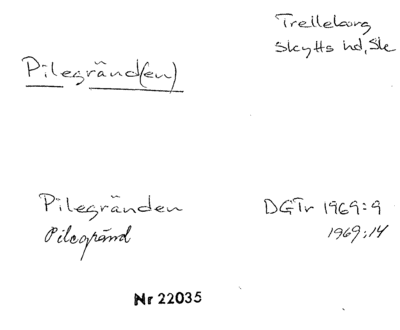 Trelleborg
Skytts hd, Sk
Pilegränd(en)
Pilegränden DGTr 1969:9
Pilegränd 1969:14
Nr 22035